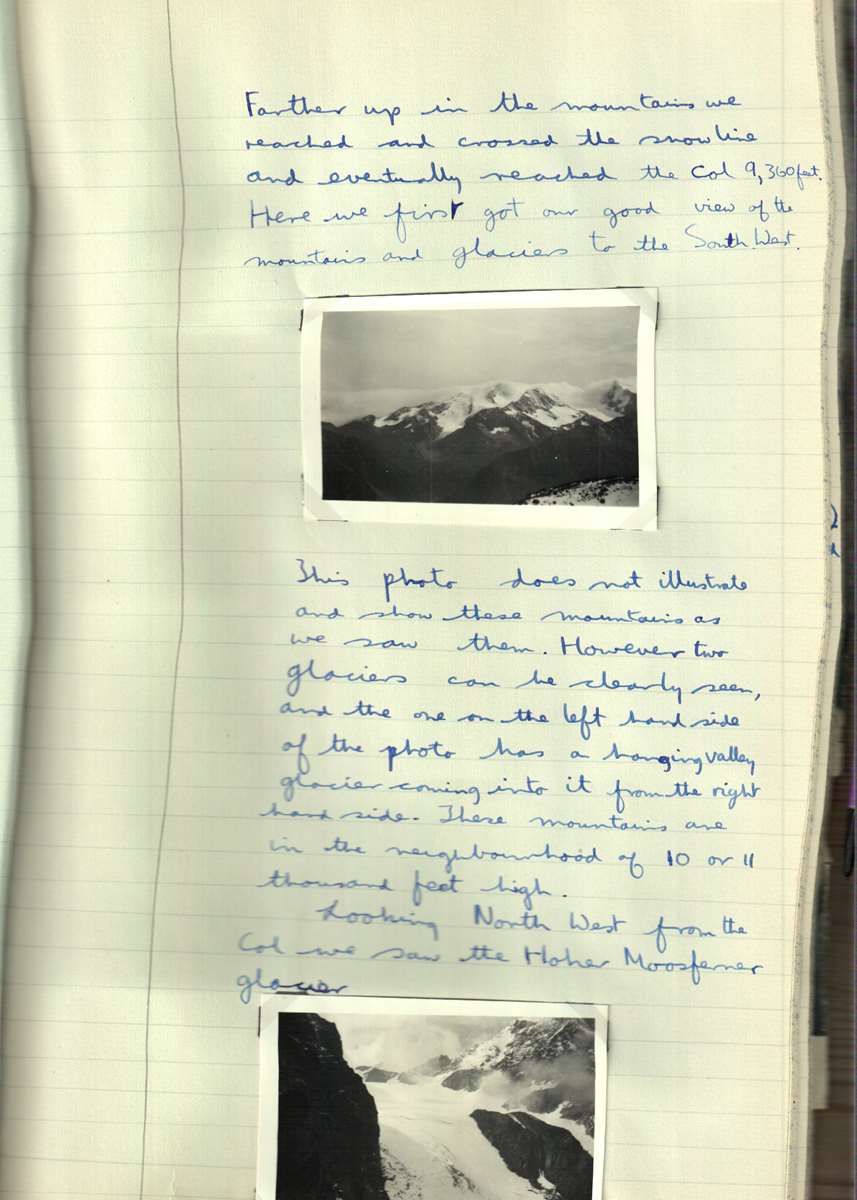 Farther up in the mountains we
reached and crossed the snow line
and eventually reached the Col 9,360 feet.
Here we first got our good view of the
mountains and glaciers to the South West.
This photo does not illustrate
and show these mountains as
we saw them. However two
glaciers can be clearly seen,
and the one on the left hand side
of the photo has a hanging valley
glacier coming into it from the right
hand side. These mountains are
in the neigubourhood of 10 or 11
thousand feet high.
Looking North West from the
Col we saw the Hoher Moosferner
glacier